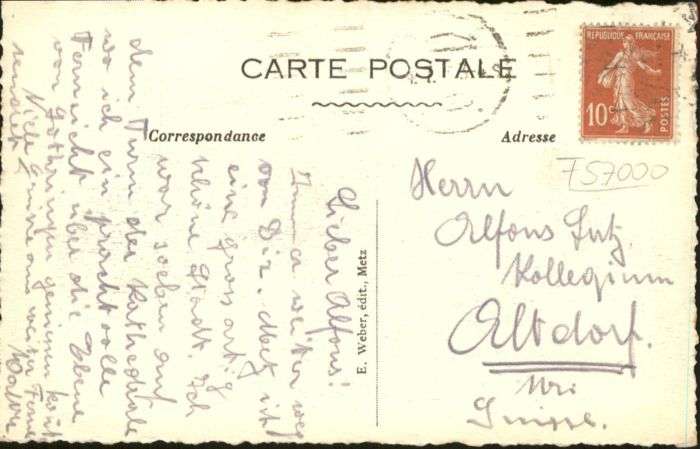 CARTE POSTALE
Correspondance
Adresse
REPUBLIQUE FRANÇAISE
10c
POSTES
757000
Lieber Alfons!
Immer weiter weg
von Dir. Metz ist
eine grossartig
schöne Stadt. Ich
war soeben auf
dem Turm der Kathedrale
wo ich ein prachtvolle
Fernsicht über die Ebene
von Lothringen geniessen konnte
Viele Grüsse aus weiter Ferne
sendet
E. Weber, édit., Metz
Herrn
Alfons Lutz
Kollegium
Altdorf.
Uri
Suisse.